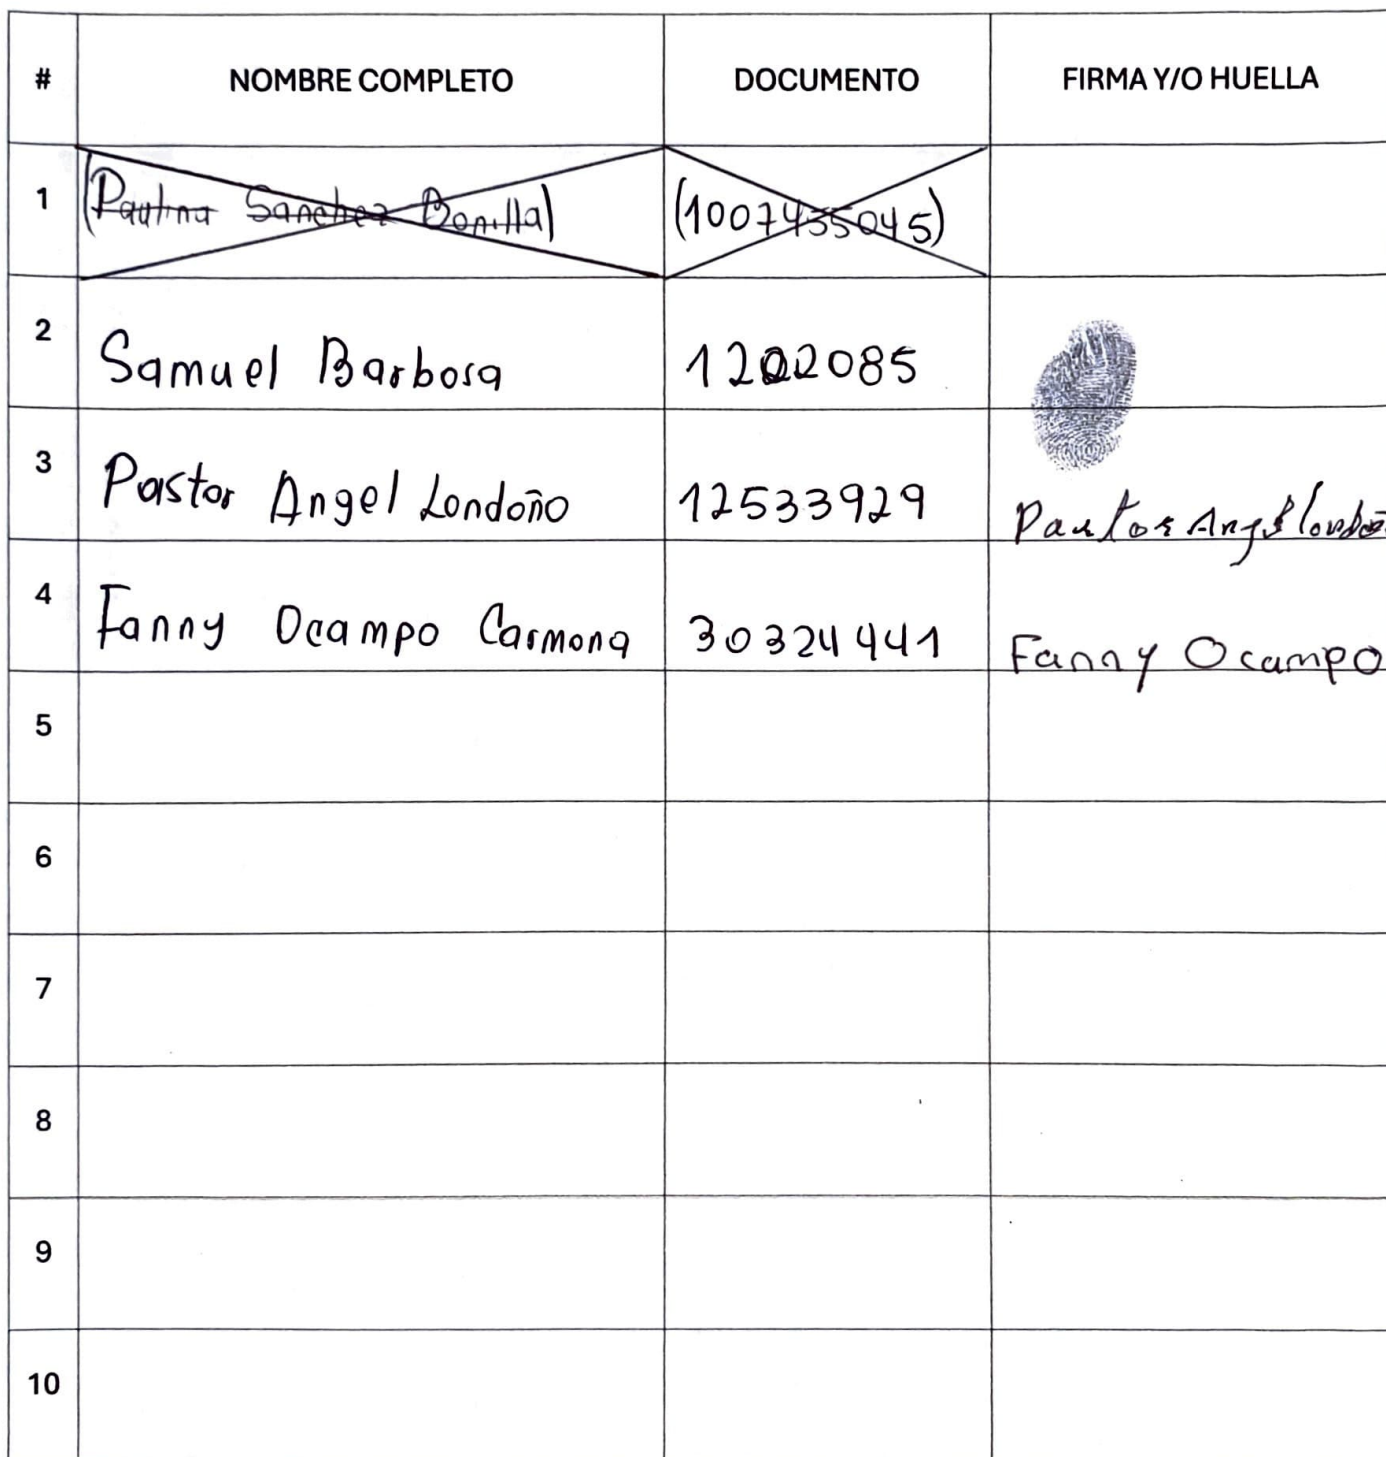 # NOMBRE COMPLETO DOCUMENTO FIRMA Y/O HUELLA
1 (Paulina Sanchez Bonilla) (1007435045)
2 Samuel Barbosa 1202085
3 Pastor Angel Londoño 12533929 Pastor Angel Londoño
4 Fanny Ocampo Carmona 30324441 Fanny Ocampo
5
6
7
8
9
10